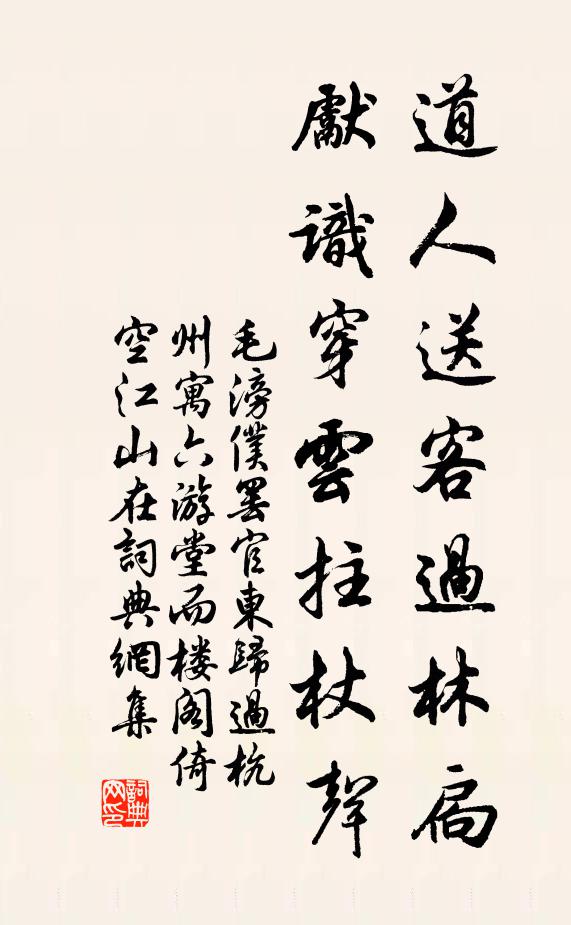 道人送客過林扃
獻識穿雲拄杖聲
毛滂僕罢官東歸過杭
州寓六游堂而楼閣倚
空江山在詞典網集
詞典网印